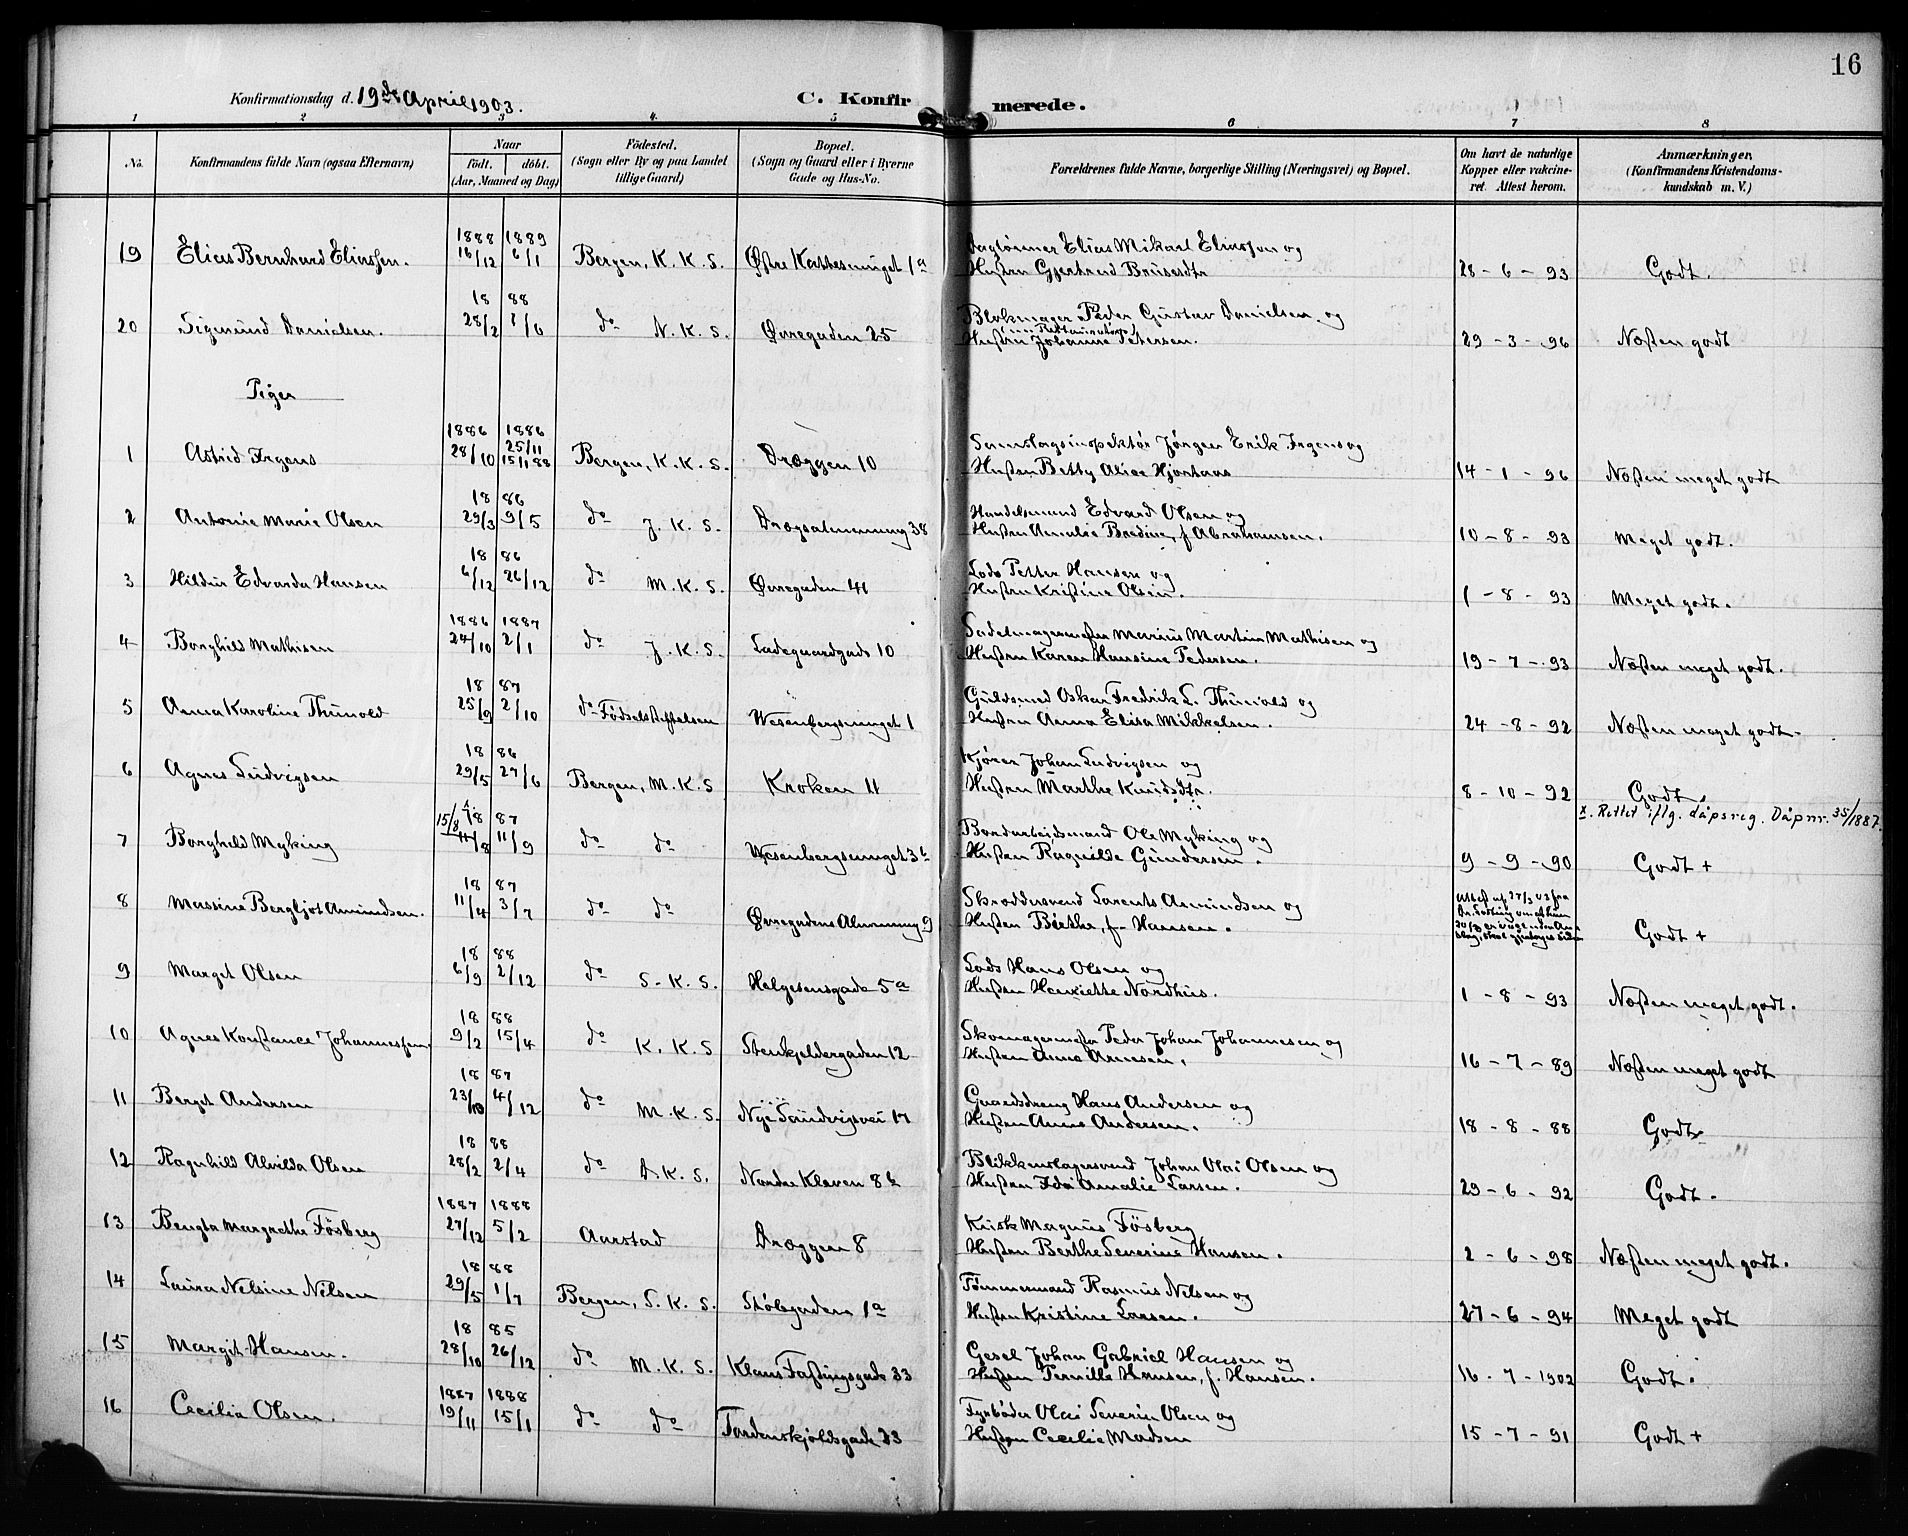 16
Konfirmationsdag d. 19de April 1903.
C. Konfirmerede.
1 2 3 4. 5 6 7 8
No. Konfirmandens fulde Navn (ogsaa Efternavn) Naar født. døbt. (Aar, Maaned og Dag) Fødested. (Sogn eller By og paa Landet tillige Gaard) Bopæl. (Sogn og Gaard eller i Byerne Gade og Hus-No. Forældrenes fulde Navne, borgerlige Stilling (Næringsvei) og Bopæl. Om havt de naturlige Kopper eller vakcineret. Attest herom. Anmærkninger, (Konfirmandens Kristendomskundskab m. V.)
1888 1889
19 Elias Bernhard Eliassen. 16/12 6/1 Bergen, K. K. S. Østre Kattesmuget 1a Dagtønner Elias Mikael Eliassen og
Hustru Gjertrud Brüsesdtr 28-6-93 Godt.
18 88
20 Sigmund Danielsen. 28/2 /6 do N. K. S. Øvregaden 25 Blokmager Peder Gustav Danielsen og
Hustru Johanne Petersen. 29-3-96 Næsten godt
Piger
1886 1886
1 Astrid Irgens 28/10 25/11 15/11 88 Bergen, K. K. S. Dræggen 10 Samlagsinspektør Jørgen Erik Irgens og
Hustru Betty Alice Hjortaas 14-1-96 Næsten meget godt
18 86
2 Antonie Marie Olsen 29/3 9/5 do J. K. S. Drægsalmenning 38 Handelsmand Edvard Olsen og
Hustru Amalie Bredine, f Abrahamsen. 10-8-93 Meget godt.
18 86
3 Hildur Edvarda Hansen 6/12 26/12 do M. K. S. Øvregaden 41 Lods Petter Hansen og
Hustru Kristine Olsen. 1-8-93 Meget godt.
1886 1887
4 Borghild Mathisen 24/10 2/1 do J. K. S. Ladegaardgade 10 Sadelmagermester Marius Martin Mathisen og
Hustru Karen Hansine Pedersen. 19-7-93 Næsten meget godt.
18 87
5 Anna Karoline Thunold 25/9 2/10 do Fødselsstiftelsen Wesenbergsmuget 1 Guldsmed Oskar Fredrik L. Thunold og
Hustru Anna Elisa Mikkelsen. 24-8-92 Næsten meget godt.
18 86
6 Agnes Ludvigsen 29/5 27/6 Bergen, M. K. S Kroken 11 Kjører Johan Ludvigsen og
Hustru Marthe Knudsdtr. 8-10-92 Godt.
x. Rettet iflg. dåpsreg. Dåpnr. 35/1887.
15/8 x. 18 87
7 Borghild Myking 11/8 11/9 do do Wesenbergsmuget 3b Bordarbeidsmand Ole Myking og
Hustru Ragnilde Gundersen. 9-9-90 Godt +
18 87
8 Massine Bergljot Amundsen. 11/4 3/7 do do Øvregadens Almenning 9 Skræddersvend Larents Amundsen og
Hustru Berthe, f. Hansen. Godt +
18 88
9 Marget Olsen 6/9 2/12 do S. K. S. Helgesensgade 5a Lods Hans Olsen og
Hustru Henriette Nordhus. 1-8-93 Næsten meget godt.
18 88
10 Agnes Konstance Johannessen. 9/2 15/4 do K. K. S Stenkjeldergaden 12 Skomagermester Peder Johan Johannesen og
Hustru Anna Arnesen. 16-7-89 Næsten meget godt
18 87
11 Berget Andersen 23/10 4/12 do M. K. S. Nye Sandvigsvei 17 Gaardsdreng Hans Andersen og
Hustru Anna Andersen. 18-8-88 Godt
18 88
12 Ragnhild Alvilda Olsen 28/2 2/4 do D. K. S. Nordre Kleven 8b Blikkenslagersvend Johan Olai Olsen og
Hustru Ida Amalie Larsen. 29-6-92 Godt.
1887 1888
13 Bengta Margrethe Fösberg 27/12 5/2 Aarstad Dræggen 8 Kusk Magnus Fösberg
Hustru Berthe Severine Hansen. 2-6-98 Næsten meget godt.
18 88
14 Laura Nelsine Nilsen 29/5 1/7 Bergen, S. K. S. Stølegaden 1a Tømmermand Rasmus Nilsen og
Hustru Kristine Larsen. 27-6-94 Meget godt
18 85
15 Margit Hansen. 28/10 26/12 do M. K. S. Klaus Fastingsgade 33 Gesel Johan Gabriel Hansen og
Hustru Pernille Hansen, f. Hansen. 16-7-1902 Godt.
1887 1888
16 Cecilia Olsen. 19/11 15/1 do do Tordenskjoldsgade 33 Fyrbøder Olai Severin Olsen og
Hustru Cecilie Madsen 15-7-91 Godt +